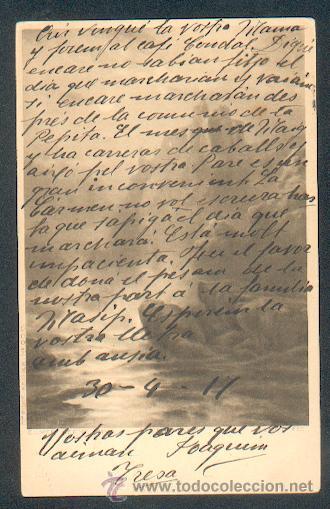 Ahí vingué la vostra Mama
y forem al café Condal. Digué
encare no sabian fitjo el
dia que marcharian y varian
si encare marcharán des
prés de la comunio de la
Pepita. El mes que ve Maig
y ha carreras de caballs y
aixó pel vostra Pare es un
gran inconvenient. La
Cármen no vol escriura has
ta que sapiga el dia que
marchará. Está molt
impacienta. Feu el favor
de doná el pésam de la
nostra part á la familia
Masip. Esperém la
vostra lletra
amb ansia.
30-4-17
Vostros pares que vos
aiman Joaquim
Tresa
www.todocoleccion.net